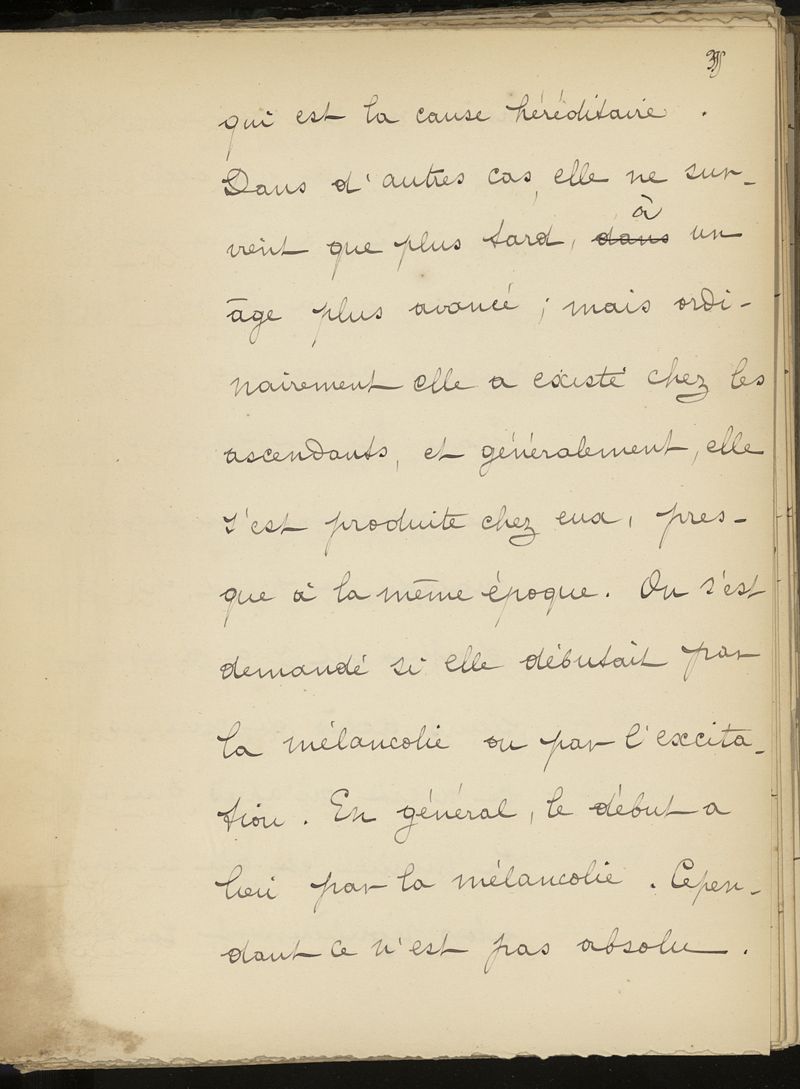 qui est la cause héréditaire.
Dans d'autres cas, elle ne sur-
vient que plus tard, dans à un
âge plus avancé ; mais ordi-
nairement elle a existé chez les
ascendants, et généralement, elle
s'est produite chez eux, pres-
que à la même époque. On s'est
demandé si elle débutait par
la mélancolie ou par l'excita-
tion. En général, le début a
lieu par la mélancolie. Cepen-
dant ce n'est pas absolu.